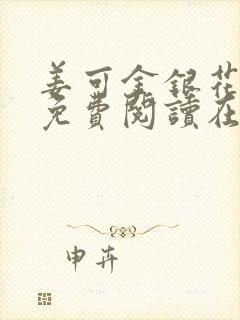 姜可金銀花
免費閱讀在
申卉